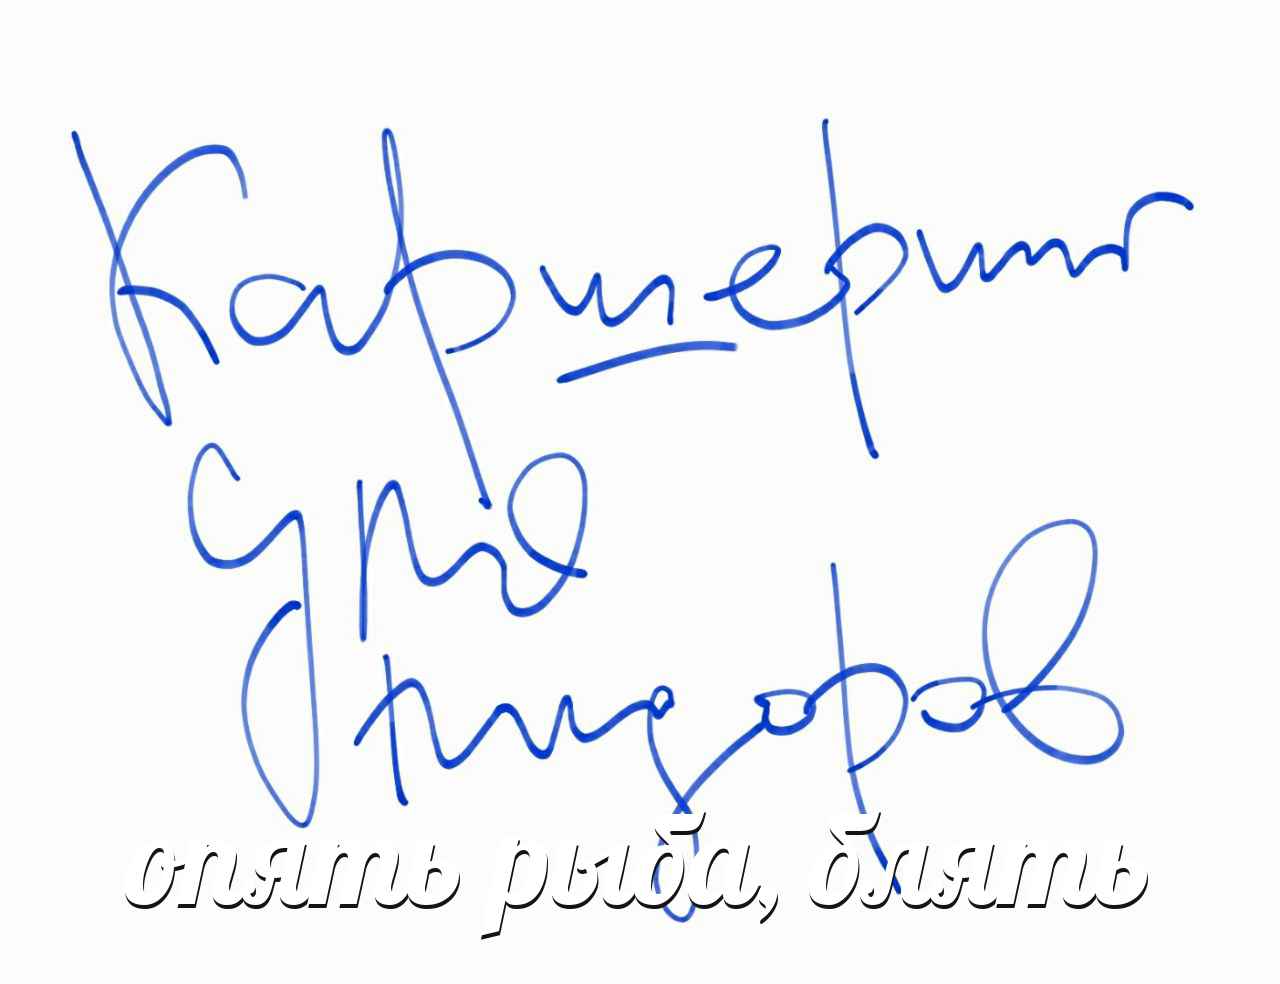 Каршеринг
для
пидоров
опять рыба, блять